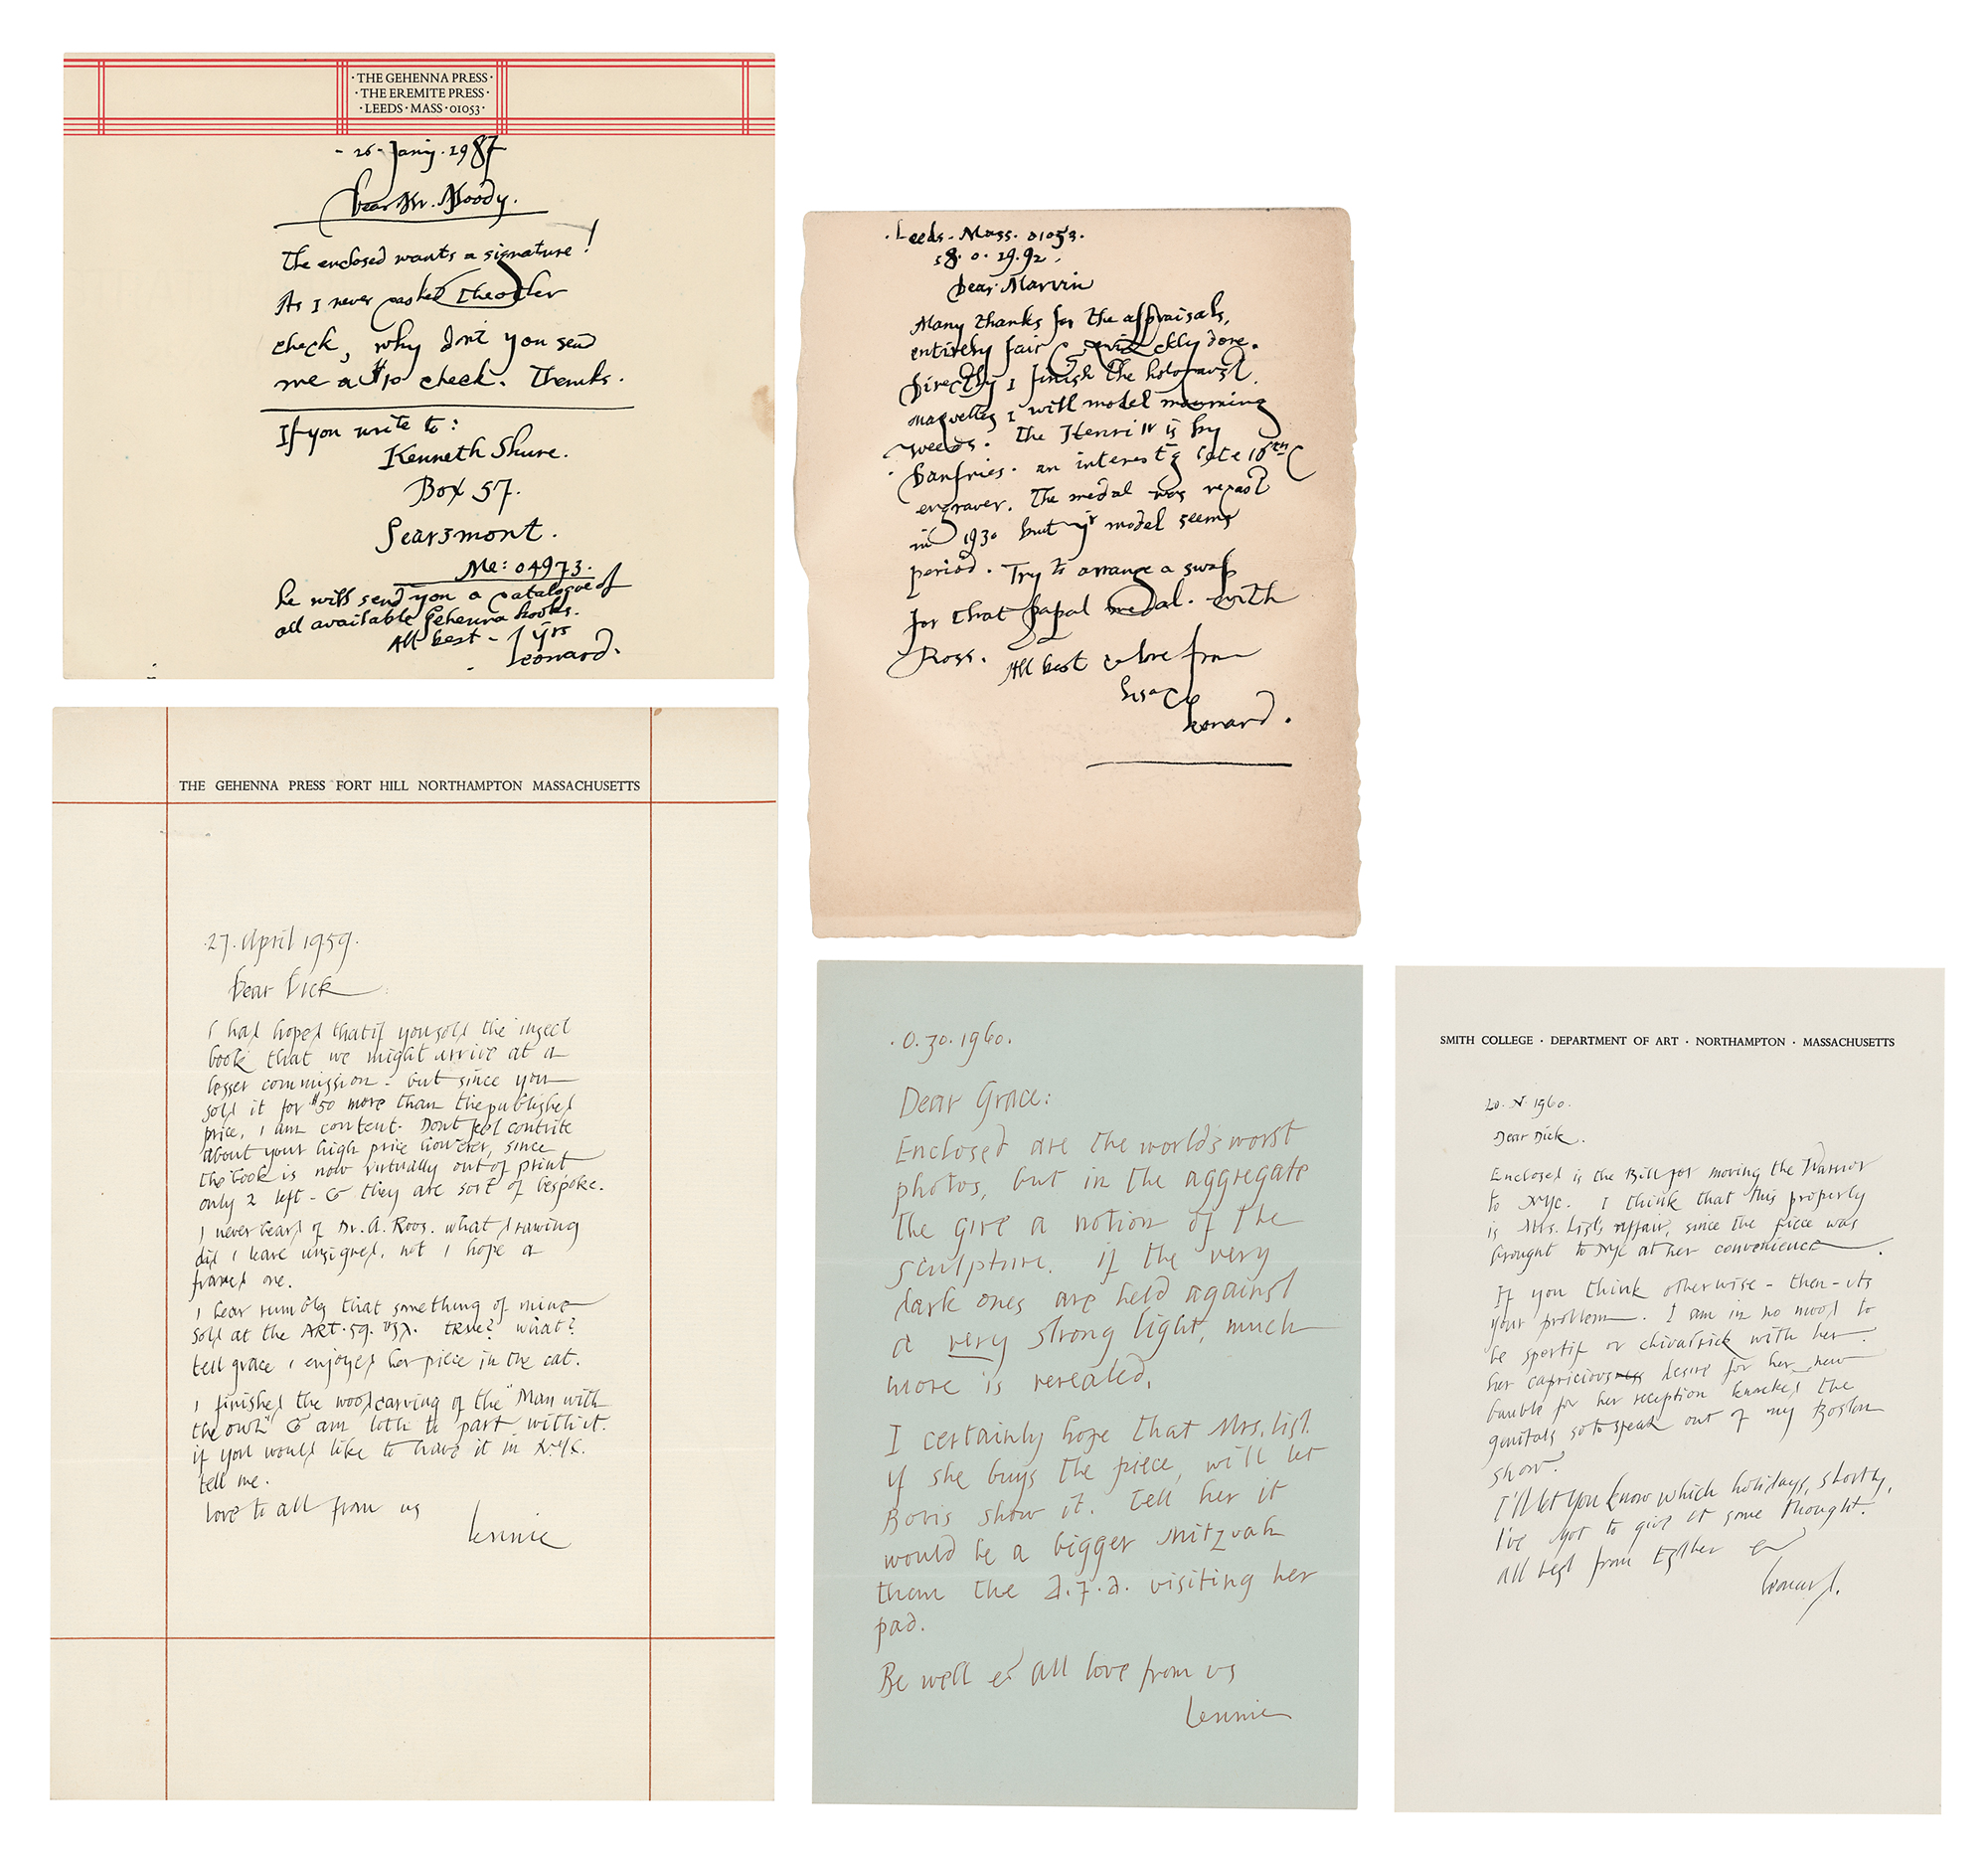 ·THE GEHENNA PRESS·
·THE EREMITE PRESS·
·LEEDS·MASS·01053·
- 26 - Jany. 1987
Dear Mr. Moody.
The enclosed wants a signature!
As I never cashed the other
check, why don't you send
me a $10 check. Thanks.
If you write to:
Kenneth Shure.
Box 57.
Searsmont.
Me: 04973.
he will send you a catalogue of
all available Gehenna books.
All best - yrs
Leonard.
THE GEHENNA PRESS FORT HILL NORTHAMPTON MASSACHUSETTS
27. April 1959.
Dear Dick
I had hoped that if you sold the insect
book that we might arrive at a
lesser commission - but since you
sold it for $50 more than the published
price, I am content. Dont feel contrite
about your high price however, since
the book is now virtually out of print
only 2 left - & they are sort of bespoke.
I never heard of Dr. A. Roos. what drawing
did I leave unsigned, not I hope a
framed one.
I hear rumbles that something of mine
sold at the ART. 59. USA. true? what?
tell grace I enjoyed her piece in the cat.
I finished the woodcarving of the "Man with
the owl" & am loth to part with it.
if you would like to have it in NYC.
tell me.
love to all from us
Lennie
·Leeds - Mass. 01053.
18. O. 1992.
Dear Marvin
Many thanks for the appraisals,
entirely fair & quickly done.
Directly I finish the holocaust
maquettes I will model mourning
weeds. The Henri IV is by
Danfries. an interestg late 16th C
engraver. The medal was recast
in 1930 but yr model seems
period. Try to arrange a swap
for that papal medal. with
Ross. All best & love from
Lisa &
Leonard.
·O. 30. 1960.
Dear Grace:
Enclosed are the worlds worst
photos, but in the aggregate
the give a notion of the
sculpture. if the very
dark ones are held against
a very strong light, much
more is revealed.
I certainly hope that Mrs. List.
if she buys the piece, will let
Boris show it. tell her it
would be a bigger mitzvah
than the a.f.a. visiting her
pad.
Be well & all love from us
Lennie
SMITH COLLEGE · DEPARTMENT OF ART · NORTHAMPTON · MASSACHUSETTS
20. N. 1960.
Dear Dick.
Enclosed is the Bill for moving the Warrior
to NYC. I think that this properly
is Mrs. List's affair, since the piece was
brought to NYC at her convenience.
If you think otherwise - then - its
your problem. I am in no mood to
be sportif or chivalrick with her.
her capricious desire for her new
bauble for her reception knocked the
genitals so to speak out of my Boston
show.
I'll let you know which holidays, shortly,
I've got to give it some thought.
all best from Esther &
Leonard.